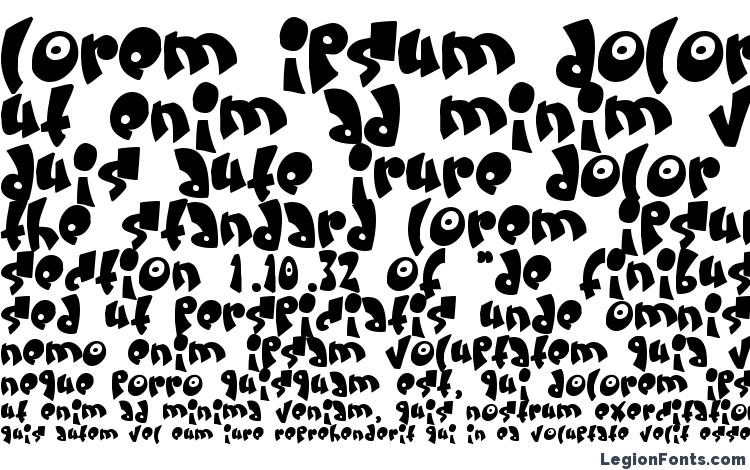 lorem ipsum dolor
ut enim ad minim v
duis aute irure dolor
the standard lorem ipsum
section 1.10.32 of "de finibus
sed ut perspiciatis unde omnis
nemo enim ipsam voluptatem quia v
neque porro quisquam est, qui dolorem ips
ut enim ad minima veniam, quis nostrum exercitation
quis autem vel eum iure reprehenderit qui in ea voluptate velit esse
LegionFonts.com